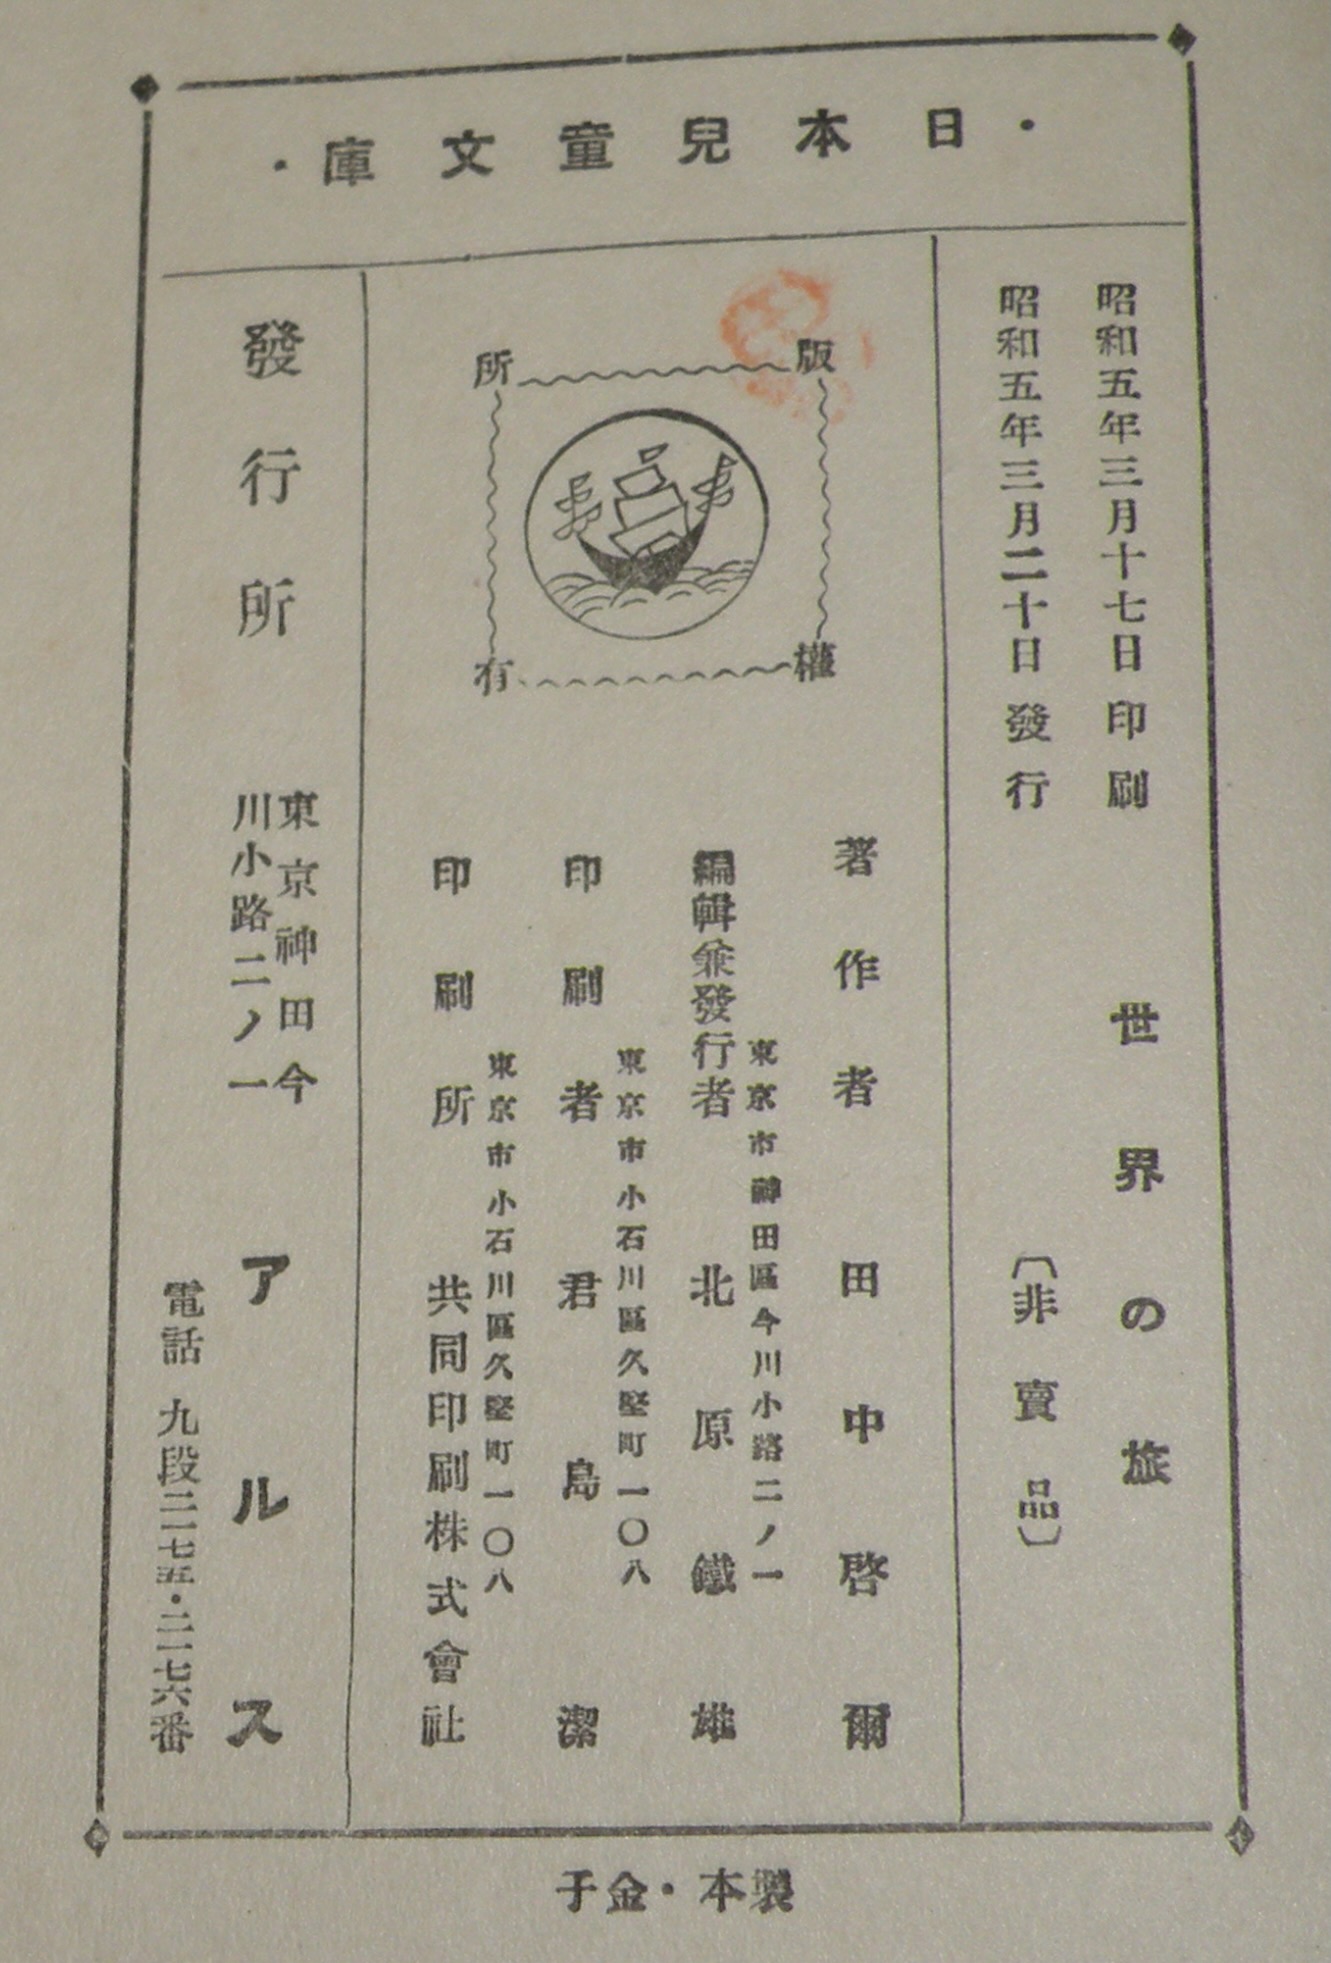 ・日本兒童文庫・
昭和五年三月十七日印刷
昭和五年三月二十日發行
世界の旅
〔非賣品〕
版權所有
著作者 田中啓爾
東京市神田區今川小路二ノ一
編輯兼發行者 北原鐵雄
東京市小石川區久堅町一〇八
印刷者 君島潔
東京市小石川區久堅町一〇八
印刷所 共同印刷株式會社
發行所
東京神田今
川小路二ノ一
アルス
電話 九段二一七五・二一七六番
製本・金子